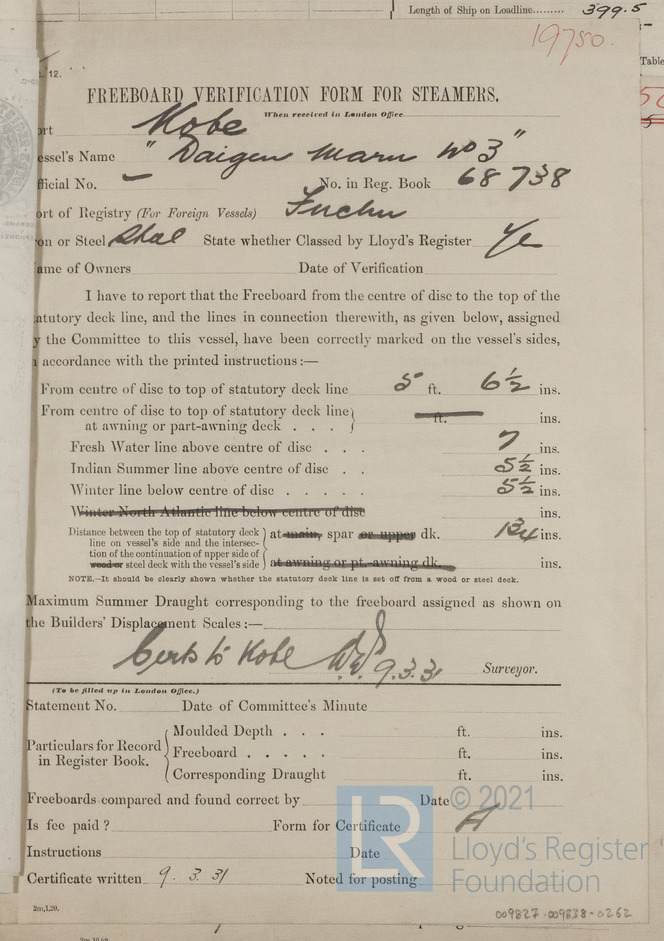 Length of Ship on Loadline......... 399.5
19750.
Table
. 12.
FREEBOARD VERIFICATION FORM FOR STEAMERS.
When received in London Office
ort Kobe
essel's Name "Daigen Maru No 3"
fficial No. — No. in Reg. Book 68738
ort of Registry (For Foreign Vessels) Fuchu
on or Steel Steel State whether Classed by Lloyd's Register Yes
ame of Owners Date of Verification
I have to report that the Freeboard from the centre of disc to the top of the
tatutory deck line, and the lines in connection therewith, as given below, assigned
y the Committee to this vessel, have been correctly marked on the vessel's sides,
accordance with the printed instructions :—
From centre of disc to top of statutory deck line 5 ft. 6½ ins.
From centre of disc to top of statutory deck line
at awning or part-awning deck . . . ft. ins.
Fresh Water line above centre of disc . . . 7 ins.
Indian Summer line above centre of disc . . 5½ ins.
Winter line below centre of disc . . . . . 5½ ins.
Winter North Atlantic line below centre of disc ins.
Distance between the top of statutory deck
line on vessel's side and the intersec-
tion of the continuation of upper side of
wood or steel deck with the vessel's side
at main, spar or upper dk. ins.
at awning or pt. awning dk. ins.
NOTE.—It should be clearly shown whether the statutory deck line is set off from a wood or steel deck.
Maximum Summer Draught corresponding to the freeboard assigned as shown on
the Builders' Displacement Scales :—
Certs to Kobe 9.3.31 Surveyor.
(To be filled up in London Office.)
Statement No. Date of Committee's Minute
Particulars for Record
in Register Book.
Moulded Depth . . . ft. ins.
Freeboard . . . . . ft. ins.
Corresponding Draught ft. ins.
Freeboards compared and found correct by Date
Is fee paid ? Form for Certificate A
Instructions Date
Certificate written 9. 3. 31 Noted for posting
2m,1,29.
LR
© 2021
Lloyd's Register
Foundation
009827-009838-0262